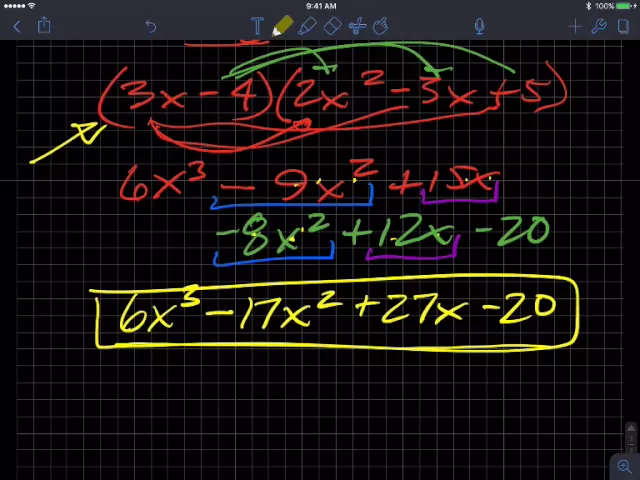 9:41 AM
100%
T
(3x - 4)(2x² - 3x + 5)
6x³ - 9x² + 15x
-8x² + 12x - 20
6x³ - 17x² + 27x - 20